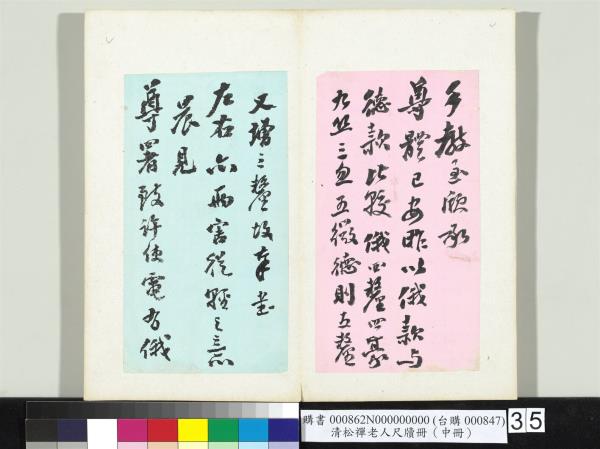 手教至承
尊體已安昨以俄款与
德款比較俄四釐四豪
九絲三忽五微德則五釐
又增三釐故奉
左右亦兩害從輕之意
晨見
尊署致許使電有俄
購書 000862N000000000 (台購 000847)
清松禪老人尺牘冊（中冊）
35